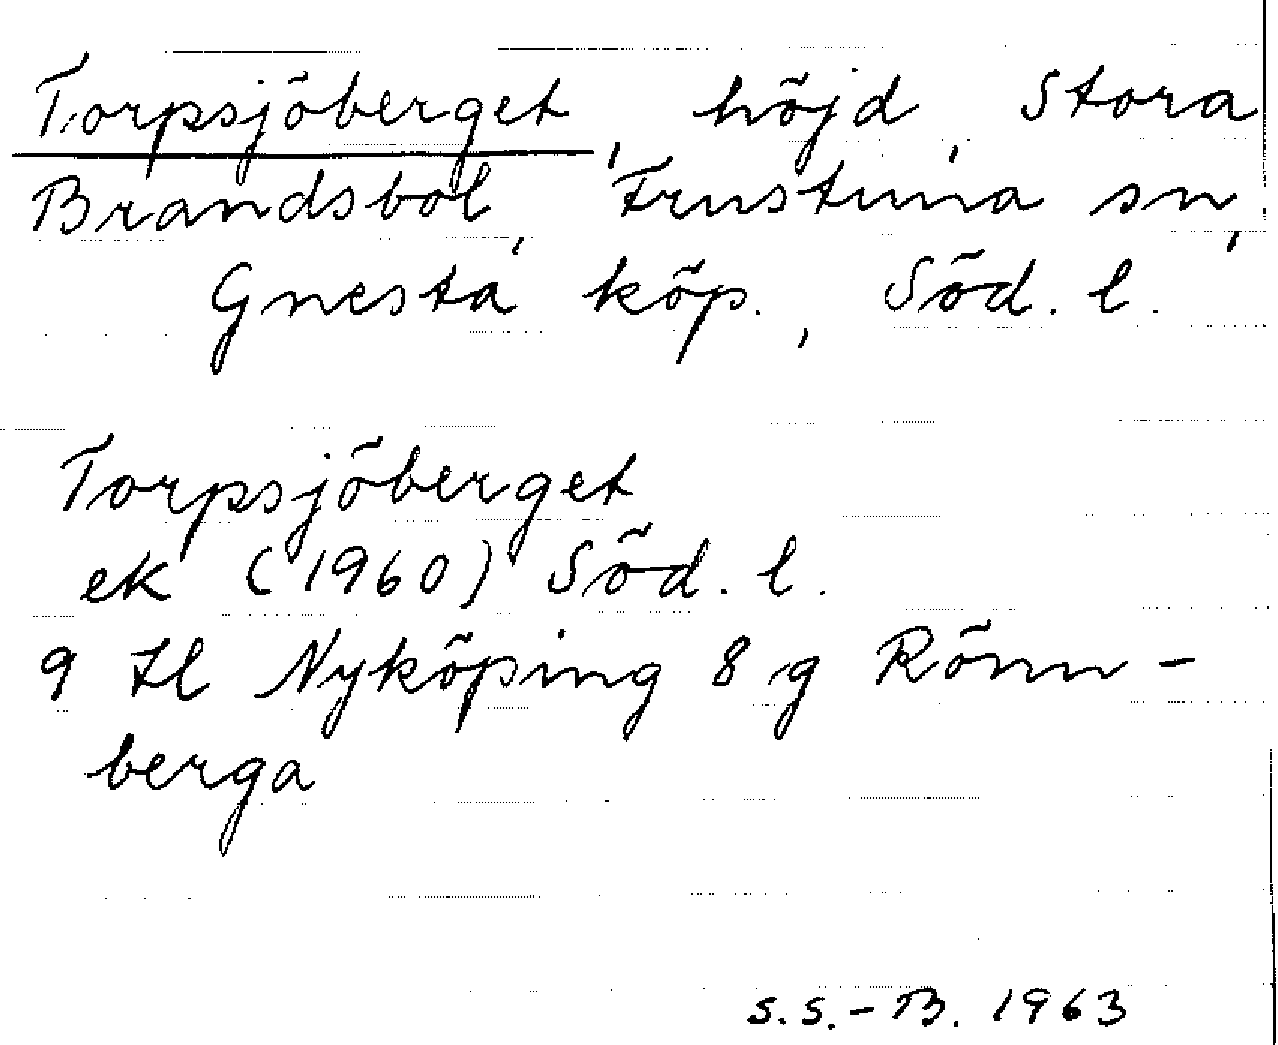 Torpsjöberget, höjd, Stora
Brandsbol, Frustuna sn,
Gnesta köp., Söd. l.
Torpsjöberget
ek (1960) Söd. l.
9 H Nyköping 8 g Rönn-
berga
S.S.-B. 1963